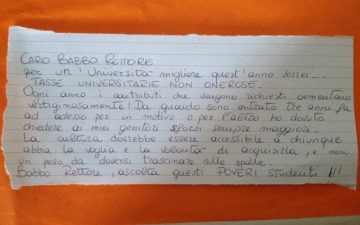 CARO BABBO RETTORE
per un' Università migliore quest'anno vorrei...
TASSE UNIVERSITARIE NON ONEROSE.
Ogni anno i contributi che vengono richiesti aumentano
vertiginosamente! Da quando sono entrato tre anni fa
ad adesso per un motivo o per l'altro ho dovuto
chiedere ai miei genitori sforzi sempre maggiori.
La cultura dovrebbe essere accessibile a chiunque
abbia la voglia e la volontà di acquisirla, e non
un peso da doversi trascinare alle spalle.
Babbo Rettore, ascolta questi POVERI STUDENTI !!!